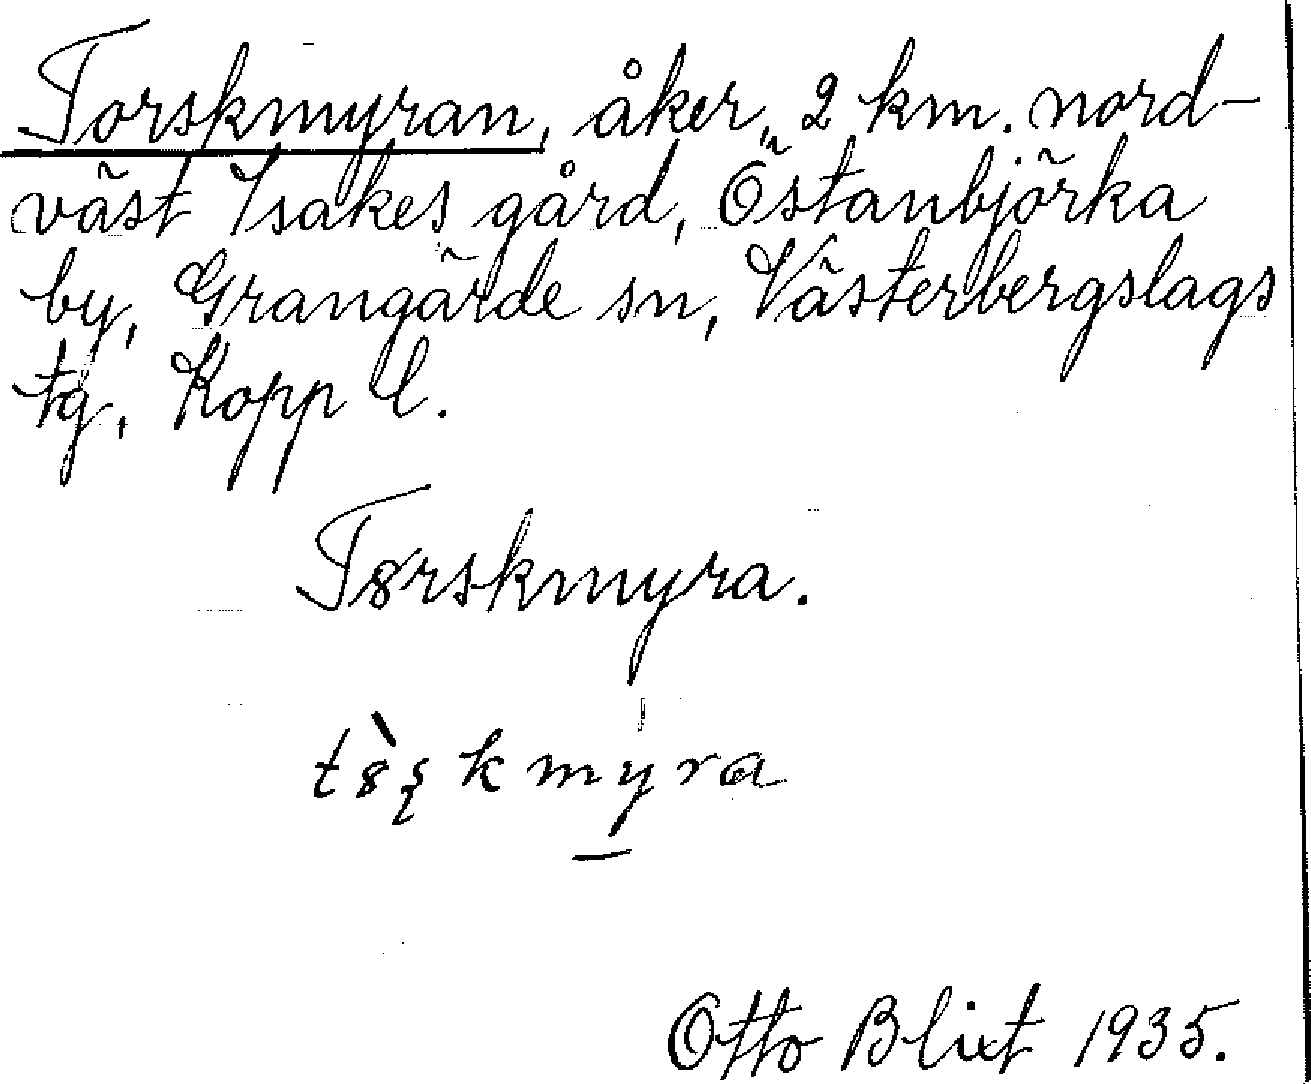 Torskmyran, åker, 2 km. nord-
väst Isakes gård, Östanbjörka
by, Grangärde sn, Västerbergslags
tg, Kopp l.
T8rskmyra.
t8̀ʂkmy̠ra
Otto Blixt 1935.